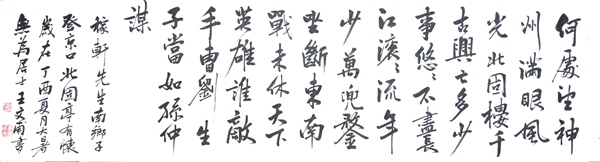 何處望神
州滿眼風
光北固樓千
古興亡多少
事悠不盡長
江滾〻流年
少萬兜鍪
坐斷東南
戰未休天下
英雄誰敵
手曹劉生
子當如孫仲
謀
稼軒先生南鄉子
登京口北固亭有懷
歲在丁酉夏月大暑
無為居士王文甫書